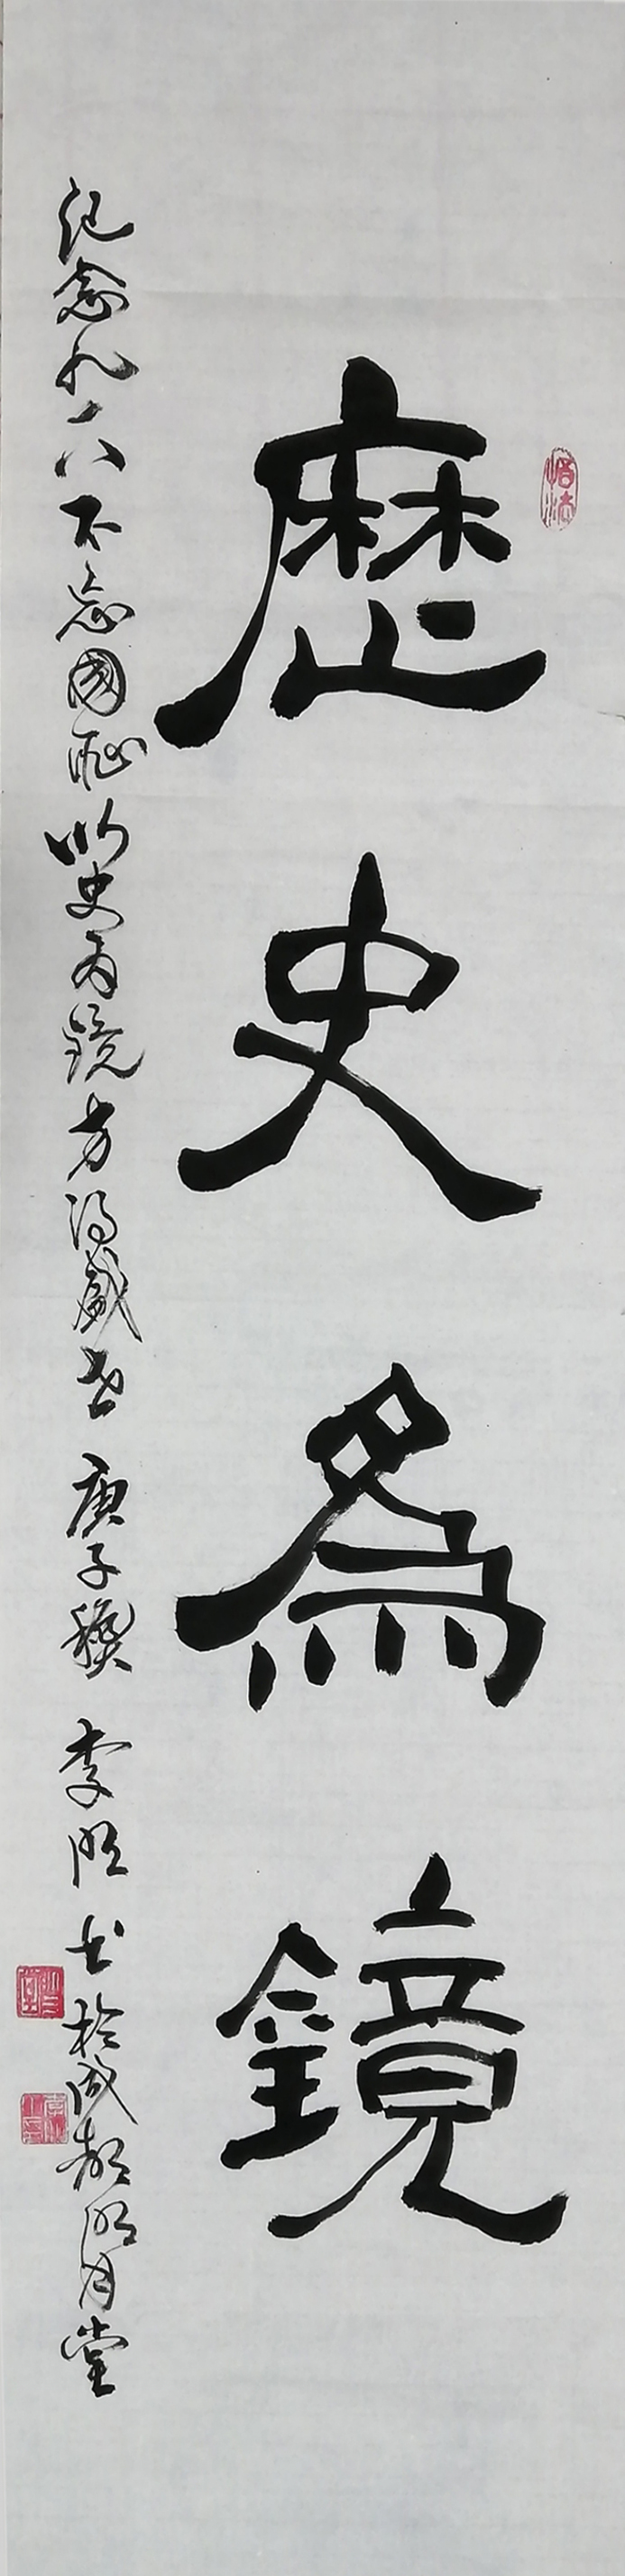 歷史為鏡
紀念九一八不忘國恥以史為鏡方得盛世 庚子秋 李明 书於成都明月堂